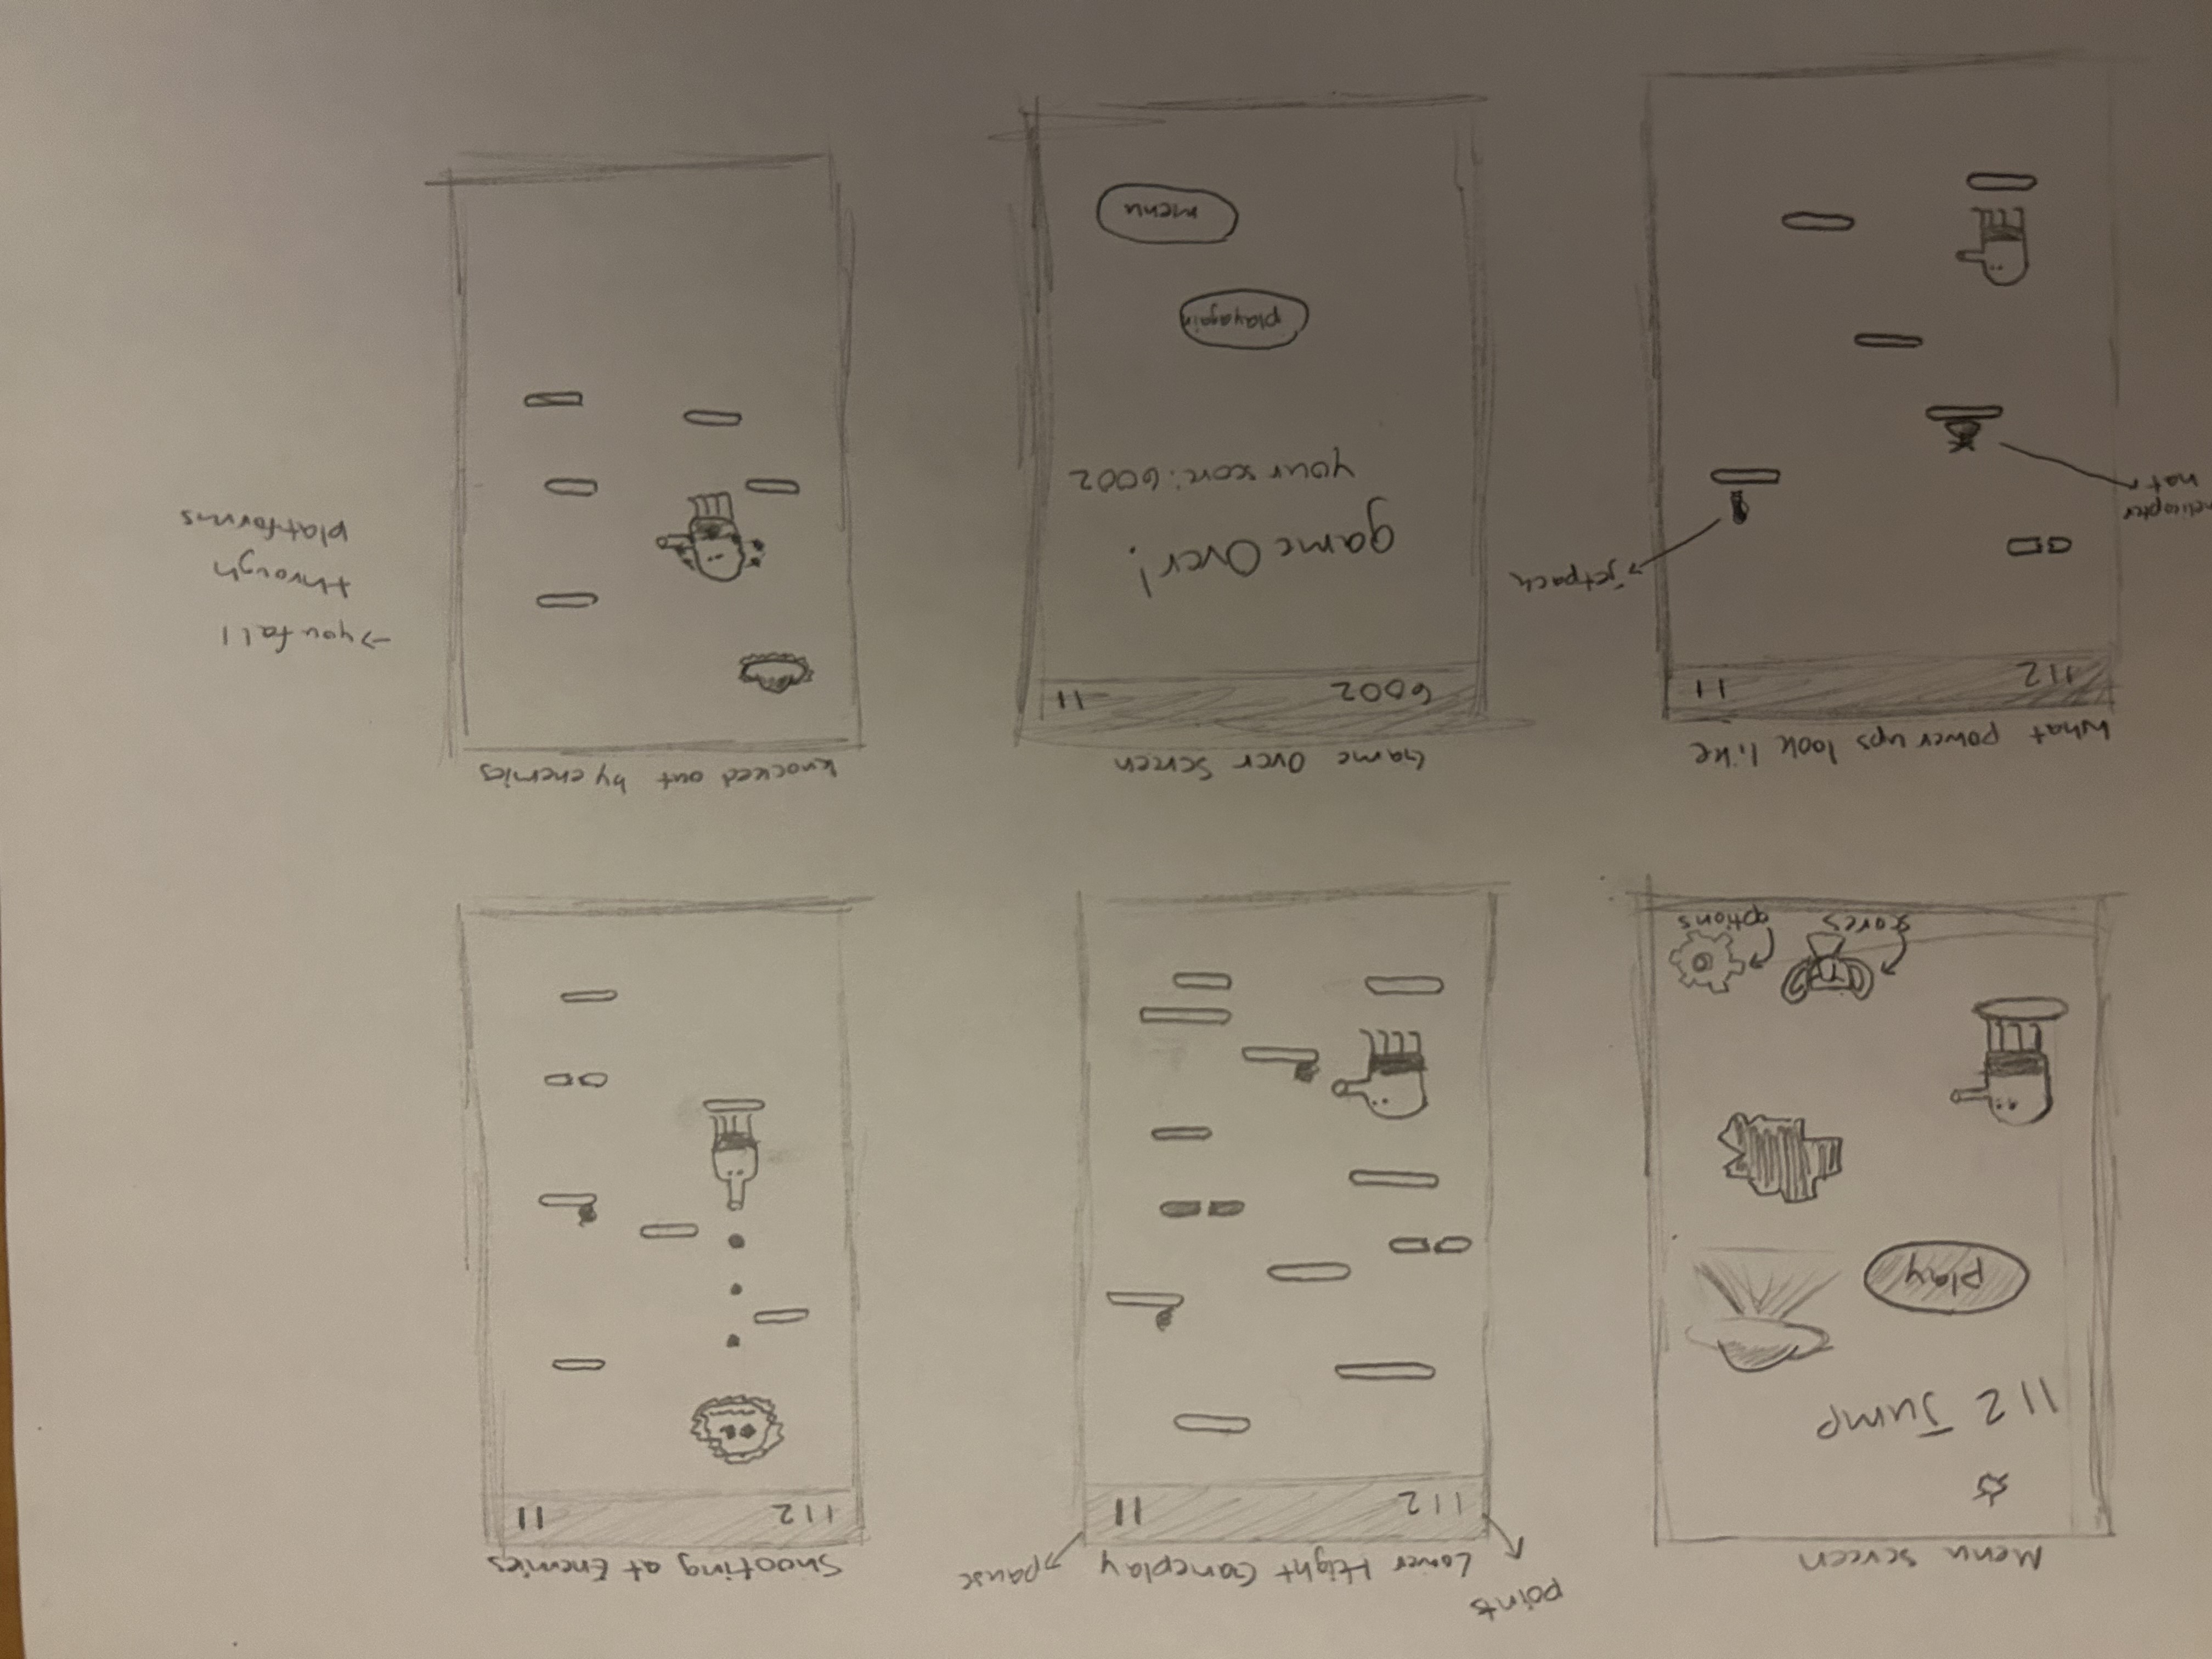 Menu screen
112 Jump
play
scores
options
points
Lower Hight Gameplay
pause
112
Shooting at Enemies
112
What power ups look like
112
jetpack
helicopter
hat
Game Over Screen
6002
game Over!
your score: 6002
play again
menu
knocked out by enemies
→ you fall
through
platforms